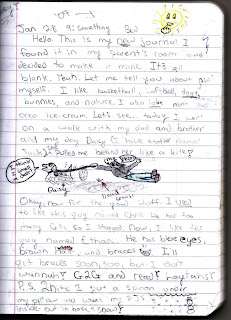 Jan 28 9:Something
Hello. This is my new journal. I
found it in my parent's room and
decided to make it mine. It's all
blank. Yeah. Let me tell you about
myself. I like basketball, softball, dogs,
bunnies, and nature. I also love mint
oreo ice-cream. Let's see.. today I went
on a walk with my dad and brother
and my dog Daisy (I have another named
pulled me behind her like a kite!
Daisy
Okay, now for the good stuff. I used
to like this guy named Chris. He has too
many girls so I stopped. Now, I like this
guy named Ethan. He has blue eyes,
brown hair, and braces. I'll
get braces soon, too, but I don't
wannuh! G2G and read!
P.S. 2nite I put a spoon under
my pillow and wore my P.J.s
inside out in hopes of snow!